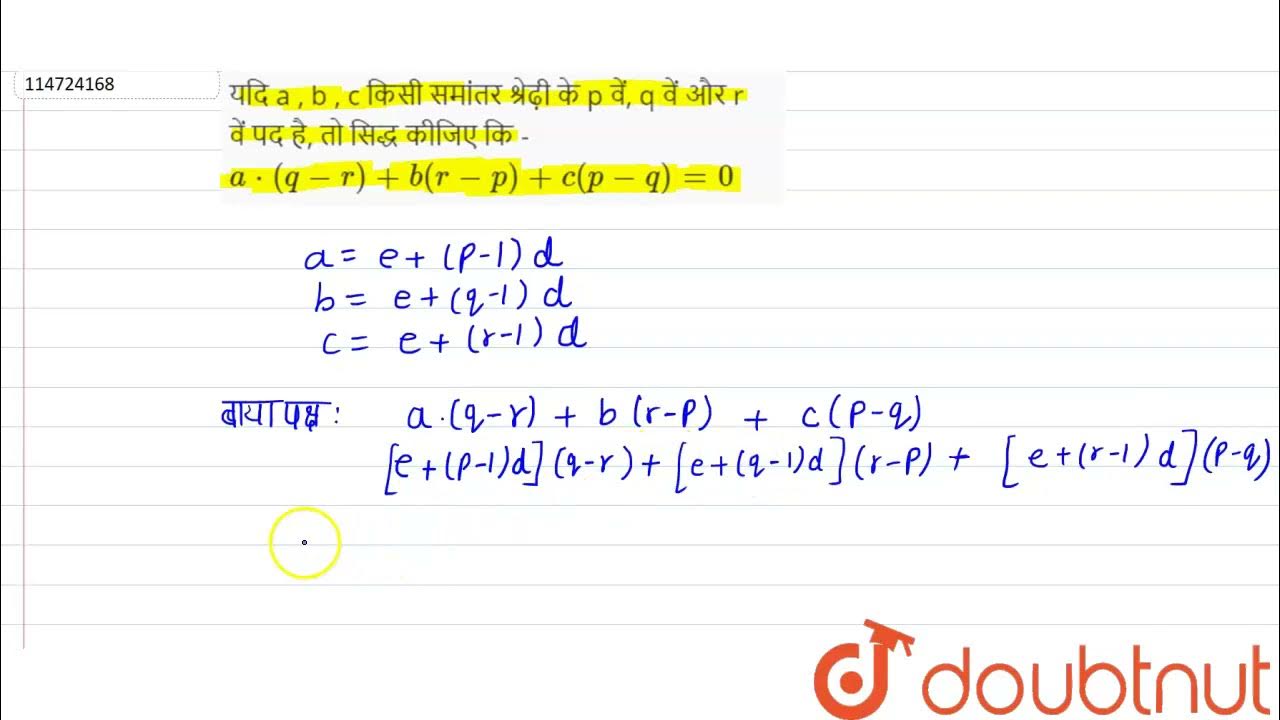 114724168
यदि a , b , c किसी समांतर श्रेढ़ी के p वें, q वें और r
वें पद है, तो सिद्ध कीजिए कि -
a · (q − r) + b(r − p) + c(p − q) = 0
a = e + (p-1) d
b = e + (q-1) d
c = e + (r-1) d
बाया पक्ष : a·(q-r) + b (r-p) + c (p-q)
[e + (p-1)d] (q-r) + [e + (q-1)d] (r-p) + [e + (r-1) d] (p-q)
doubtnut